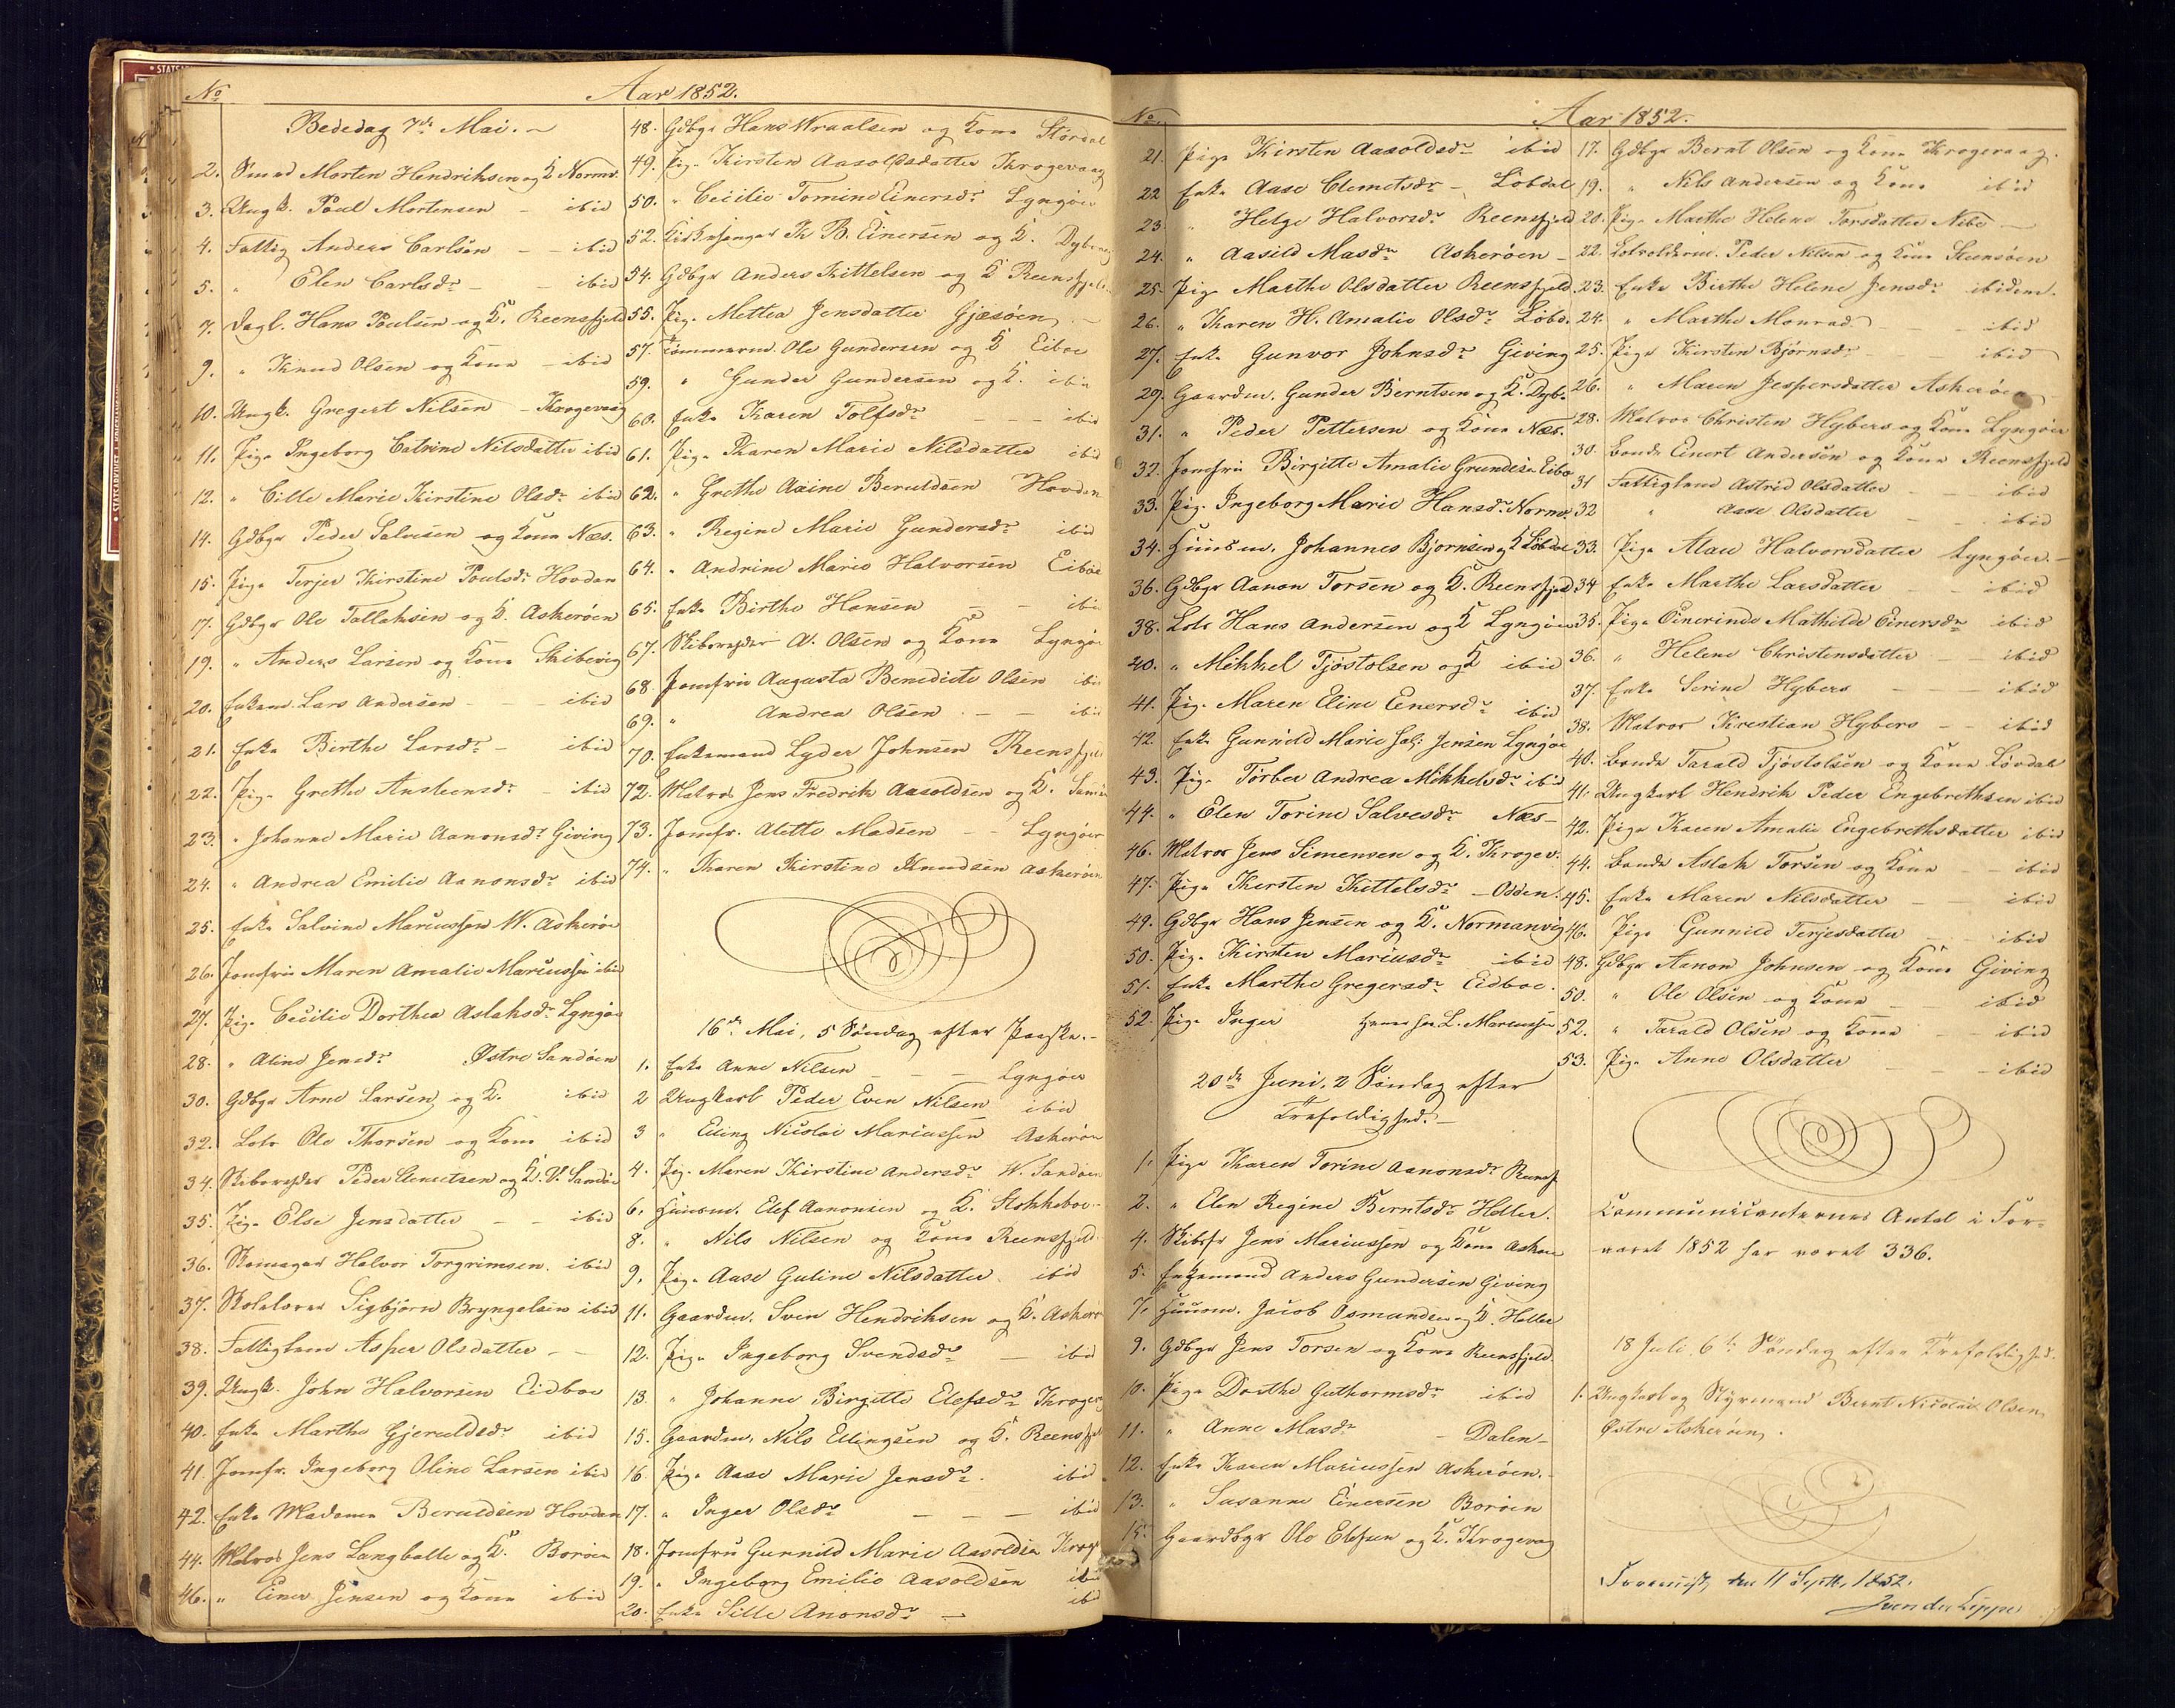 No
Aar 1852.
Bededag 7de Mai.
2. Smed Morten Hendriksen og K Normv.
3. Ungk. Poul Mortensen - ibid
4. Fattig Anders Carlsen - - ibid
5. " Elen Carlsdr - - ibid
7. Dagl. Hans Poulsen og K. Reensfjeld
9. " Knud Olsen og Kone - ibid
10. Ungk. Gregert Nilsen - Krogevaag
11. Pige Ingeborg Catrine Nilsdatter ibid
12. " Cille Marie Kirstine Olsdr ibid
14. Gdbgr Peder Salvesen og Kone Næs.
15. Pige Terjer Kirstine Poulsdr Hovdan
17. Gdbgr Ole Tallaksen og K. Askerøen
19. " Anders Larsen og Kone Skibevig
20. Enkem. Lars Andersen - - - ibid
21. Enke Birthe Larsdr - ibid
22. Pige Grethe Austeensdr - ibid
23. " Johanne Marie Aanonsdr Giving
24. " Andrea Emilie Aanonsdr ibid
25. Enke Salvine Mariussen W. Askerøe
26. Jomfru Maren Amalie Mariussen ibid
27. Pige Cecilie Dorthea Aslaksdr Lyngøe
28. " Aline Jensdr Østre Sandøen
30. Gdbgr Arne Larsen og K. ibid
32. Lods Ole Thorsen og Kone ibid
34. Skibsreder Peder Clemetsen og K. V. Sandøe
35. Pige Else Jensdatter - - ibid
36. Skomager Halvor Torgrimsen. ibid
37. Skolelærer Sigbjørn Bryngelsen ibid
38. Fattiglem Asper Olsdatter - -
39. Ungk. John Halvorsen Eidboe
40. Enke Marthe Gjeruldsdr ibid
41. Jomfr. Ingeborg Oline Larsen ibid
42. Enke Madame Beruldsen Hovdan
44. Matros Jens Langballe og K. Borøen
46. " Einer Jensen og Kone ibid
48. Gdbgr Hans Wraalsen og Kone Stördal
49. Pige Kirsten Aasoldsdatter Krogevaag
50. " Cecilie Tomine Einersdr Lyngøer
52. Kirkesanger B. Einersen og K. Dybvaag
54. Gdbgr Anders Kittelsen og K Reensfjeld
55. Pige Mettea Jensdatter Gjæsøen
57. Tømmerm. Ole Gundersen og K Eiboe
59. " Gunder Gundersen og K. ibid
60. Enke Karen Tolfsdr - - - ibid
61. Pige Karen Marie Nilsdatter ibid
62. " Grethe Axine Beruldsen Hovdan
63. " Regine Marie Gundersdr ibid
64. " Andrine Marie Halvorsen Eiboe
65. Enke Birthe Hansen - - ibid
67. Skibsreder A. Olsen og Kone Lyngør
68. Jomfru Augusta Benedicte Olsen ibid
69. " Andrea Olsen - - ibid
70. Enkemand Lyder Johnsen Reensfjeld
72. Matros Jens Fredrik Aasoldsen og K.
73. Jomfr. Alette Madsen - - Lyngøer
74. " Karen Kirstine Knudsen Askerøen
16de Mai, 5 Søndag efter Paaske.
1. Enke Anne Nilsen - - - Lyngøer
2 Ungkarl Peder Even Nilsen ibid
3 " Elling Nicolai Mariussen Askerøen
4. Pige Maren Kirstine Andersdr W. Sandøen
6. Huusm. Elef Aanonsen og K. Stokkeboe
8. " Nils Nilsen og Kone Reensfjeld
9. Pige Aase Guline Nilsdatter ibid
11. Gaardm. Sven Hendriksen og K. Askerø
12. Pige Ingeborg Svendsdr - ibid
13. " Johanne Birgitte Elefsdr Krogev
15. Gaardm. Nils Ellingsen og K. Reensfjeld
16. Pige Aase Marie Jensdr. ibid
17. " Inger Olsdr - - - ibid
18. Jomfru Gunnild Marie Aasoldsen Krog
19. " Ingeborg Emilie Aasoldsen ibid
20. Enke Sille Anonsdr - ibid
No.
Aar 1852.
21. Pige Kirsten Aasoldsdr ibid
22 Enke Aase Clemetsdr - Løbdal
23 " Helge Halvorsdr Reensfjeld
24. " Aasild Masdr Askerøen -
25. Pige Marthe Olsdatter Reensfjeld
26. " Karen H. Amalie Olsdr Løbd.
27. Enke Gunvor Johnsdr Giving
29. Gaardm. Gunder Berntsen og K. Dyb.
31. " Peder Pettersen og Kone Næs.
32. Jomfru Birgitte Amalie Grundesen Eibo
33. Pige Ingeborg Marie Hansdr Normv.
34. Huusm. Johannes Bjørnsen og K Løbdal
36. Gdbgr Aanon Torsen og K. Reensfjeld
38. Lods Hans Andersen og K Lyngøer
40. " Mikkel Tjøstolsen og K ibid
41. Pige Maren Eline Einersdr ibid
42. Enke Gunnild Marie Jensen Lyngøe
43. Pige Torber Andrea Mikkelsdr ibid
44. " Elen Torine Salvesdr Næs -
46. Matros Jens Simensen og K. Krogev.
47. Pige Kersten Kittelsdr - Odden.
49. Gdbgr Hans Jensen og K. Normanvig
50. Pige Kirsten Mariusdr ibid
51. Enke Marthe Gregersdr Eidboe.
52. Pige Inger L. Mariussen
20de Juni, 2 Søndag efter
Trefoldighed. -
1. Pige Karen Torine Aanonsdr Reensf
2. " Elen Regine Berntsdr Holler.
4. Skibsfr Jens Mariussen og Kone Asker
5. Enkemand Anders Gundersen Giving
7. Huusm. Jacob Osmundsen og K. Holler
9. Gdbgr Jens Torsen og Kone Reensfjeld.
10. Pige Dorthe Guthormsdr ibid
11. " Anne Masdr - Dalen -
12. Enke Karen Mariussen Askerøen.
13. " Susanne Einersen Borøen
15. Gaardbgr Ole Elefsen og K. Krogevag
17. Gdbgr Bernt Olsen og Kone Krogevaag.
19. " Nils Andersen og Kone ibid
20. Pige Marthe Helene Torsdatter Nibe -
22. Peder Nilsen og Kone Steensøen
23. Enke Birthe Helene Jensdr ibidem.
24. " Marthe Monrad - - ibid
25. Pige Kirsten Bjørnsdr - - ibid
26. " Maren Jespersdatter Askerøen
28. Matros Christen Hybers og Kone Lyngøer
30. Bonde Einert Andersen og Kone Reensfjeld
31 Fattiglem Astrid Olsdatter - - ibid
32 " Aase Olsdatter - - ibid
33. Pige Alau Halvorsdatter Lyngøer. -
34 Enke Marthe Larsdatter - - ibid
35. Pige Einerinde Mathilde Einersdr ibid
36. " Helene Christensdatter - - ibid
37. Enke Serine Hybers - - - ibid
38. Matros Krestian Hybers - - ibid
40. Bonde Tarald Tjøstolsen og Kone Løvdal
41. Ungkarl Hendrik Peder Engebrethsen ibid
42. Pige Karen Amalie Engebrethsdatter ibid
44. Bonde Aslak Torsen og Kone - - ibid
45. Enke Maren Nilsdatter - - ibid
46. Pige Gunnild Terjesdatter - - ibid
48. Gdbgr Aanon Johnsen og Kone Giving
50. " Ole Olsen og Kone - - ibid
52. " Tarald Olsen og Kone - - ibid
53. Pige Anne Olsdatter - - - ibid
Communicanternes Antal i For-
aaret 1852 har været 336.
18 Juli 6te Søndag efter Trefoldighed.
1. Ungkarl og Styrmand Bernt Nicolai Olsen,
Østre Askerøen.
den 11 Septb. 1852.